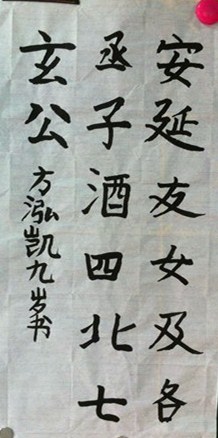 安延友女及各
丞子酒四北七
玄公
方泓凯九岁书